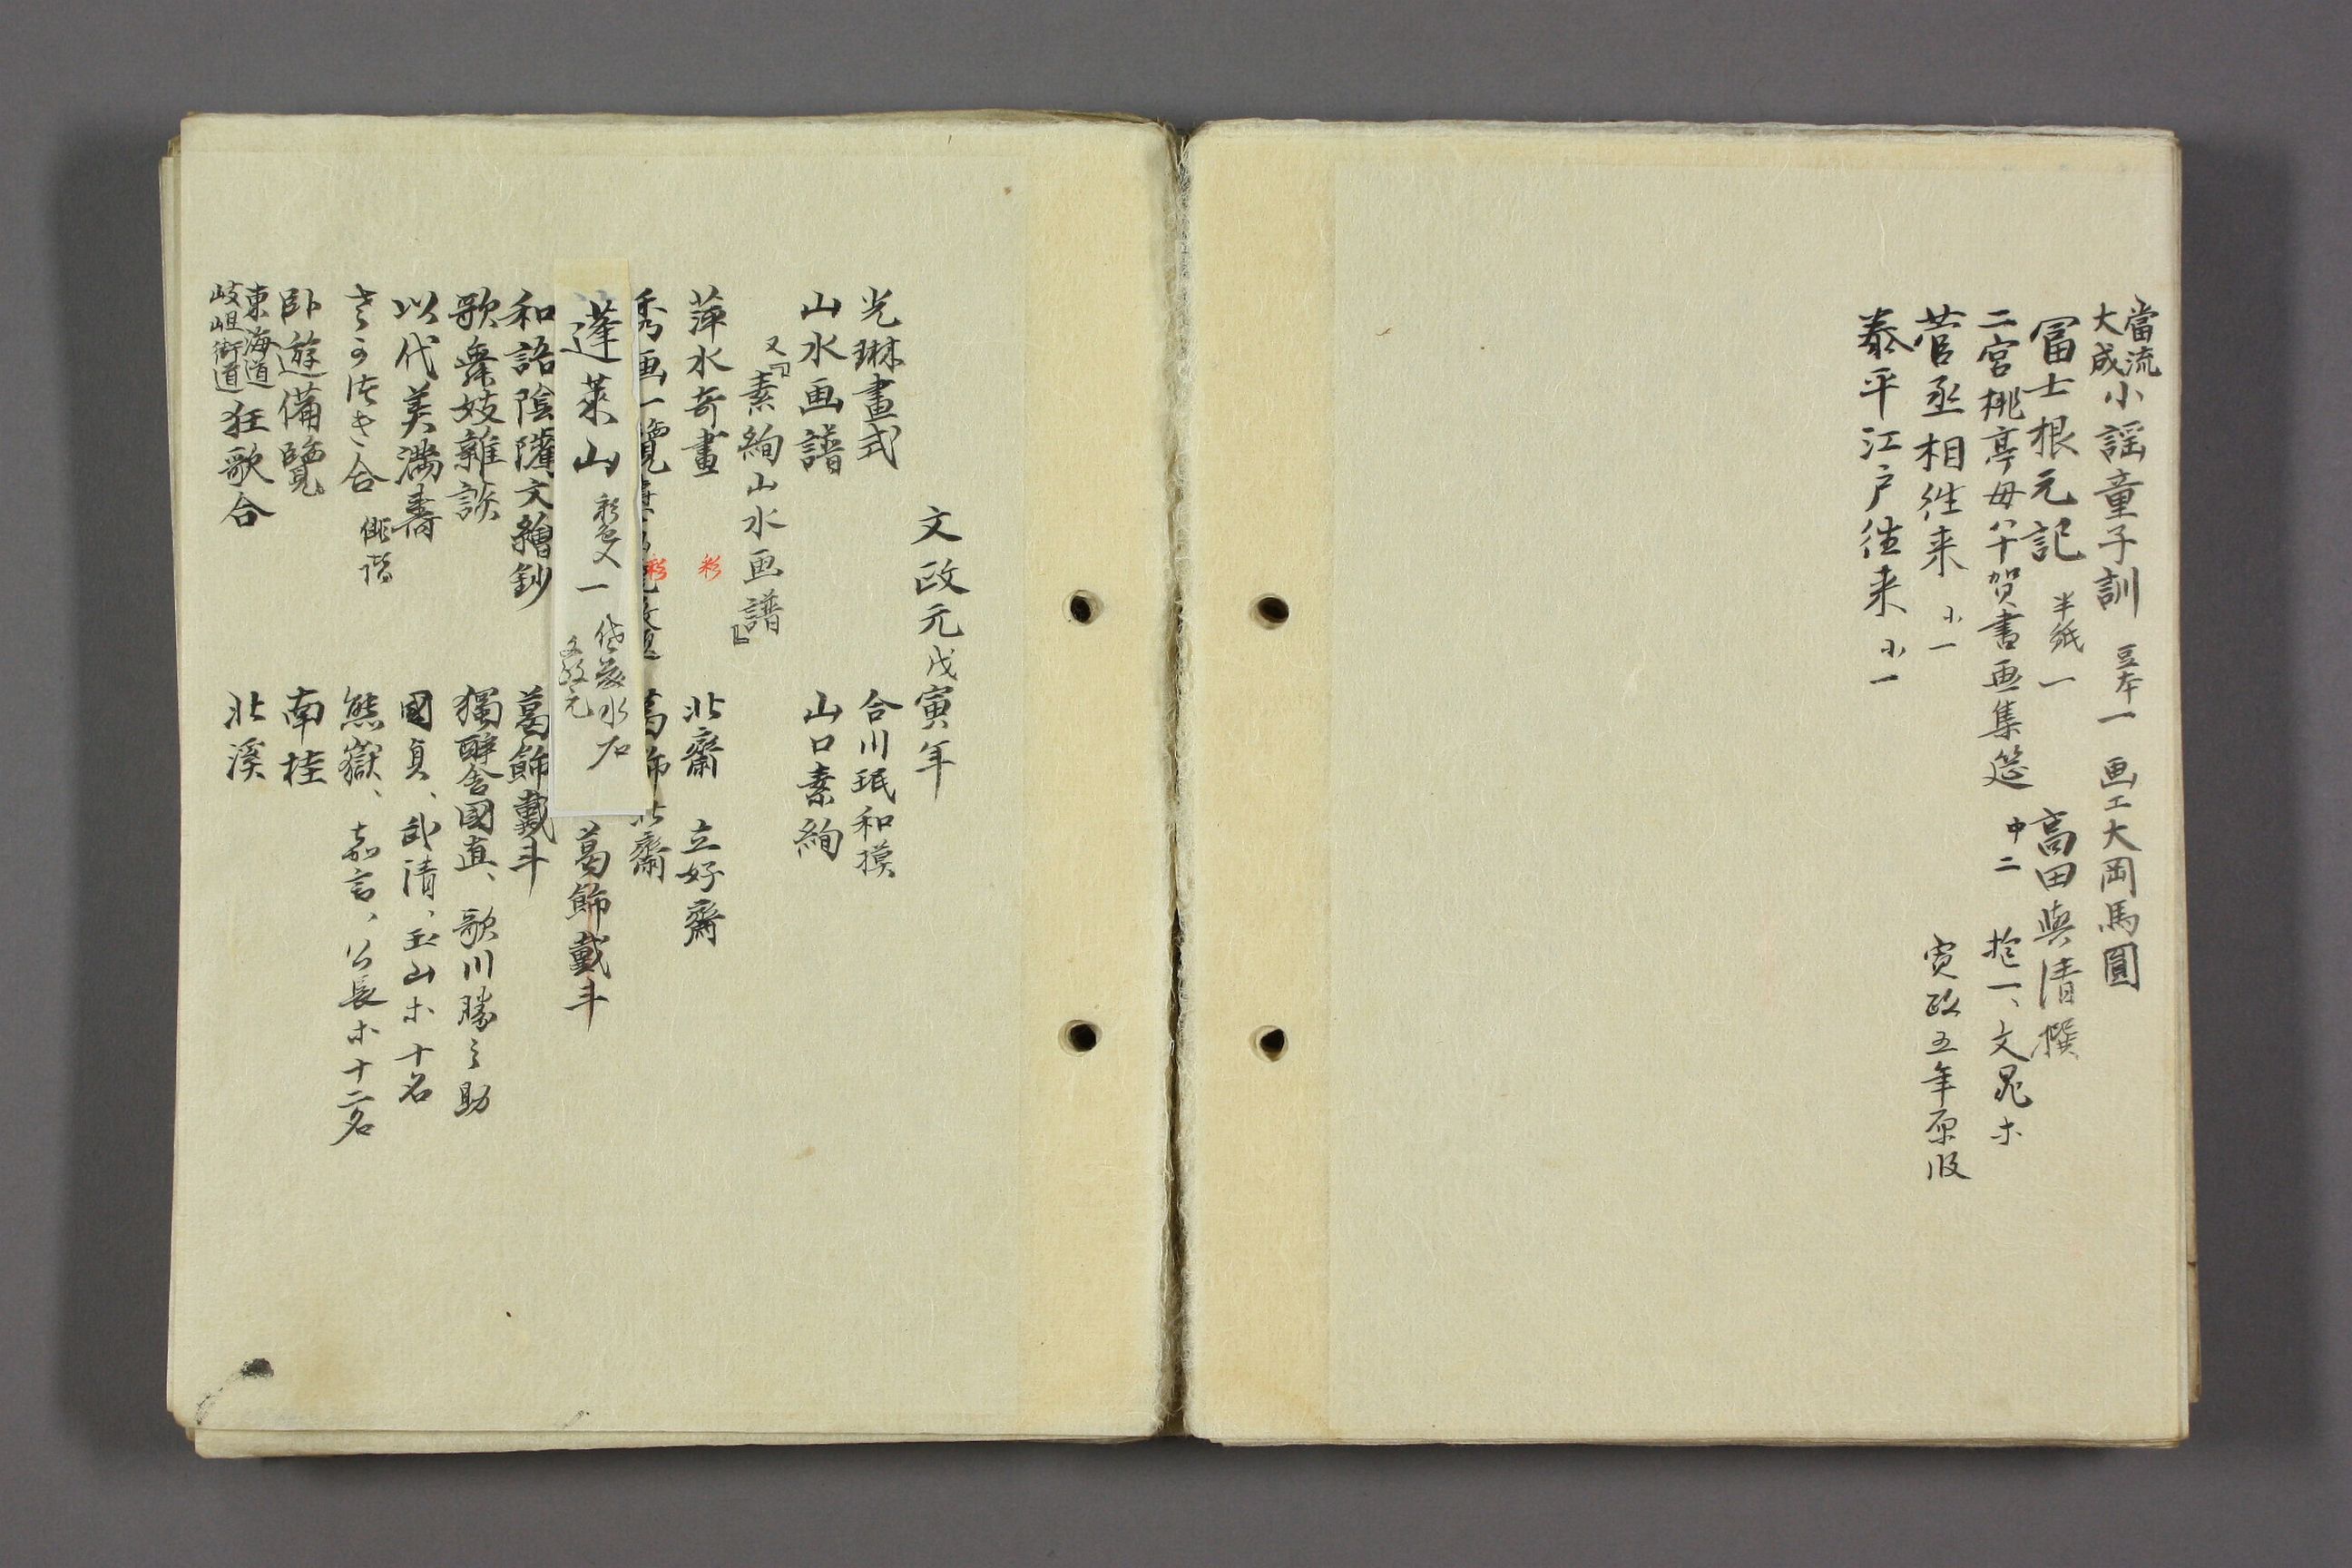 當流
大成
小謡童子訓 豆本一 画工大岡馬圓
冨士根元記 半紙一 高田與清撰
二宮桃亭母八十賀書画集筵 中二 抱一、文晁ホ
菅丞相往来 小一 寛政五年原版
泰平江戸往来 小一
文政元戊寅年
光琳畫式 合川珉和摸
山水画譜 山口素絢
又『素絢山水画譜』
萍水奇畫 彩 北齋 立好齋
秀画一覧 彩 葛飾北齋
蓬莱山 彩色入一 水石
文政元
葛飾戴斗
和語陰隲文繪鈔 葛飾戴斗
歌舞妓雜談 獨醉舎國直、歌川勝之助
以代美満寿 國貞、武清、玉山ホ十名
合 俳諧 熊嶽、嘉言、公長ホ十二名
臥遊備覽 南桂
東海道
岐岨街道
狂歌合 北溪